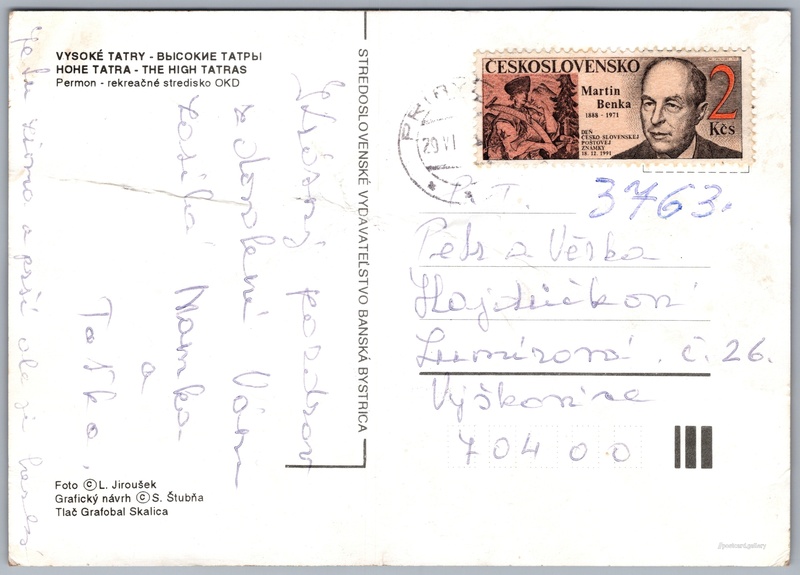 VYSOKÉ TATRY - ВЫСОКИЕ ТАТРЫ
HOHE TATRA - THE HIGH TATRAS
Permon - rekreačné stredisko OKD
pozdrav
z dovolené Vám
Mamka
a
Taťka.
Je tu zima a prší ale je hezky
Foto © L. Jiroušek
Grafický návrh © S. Štubňa
Tlač Grafobal Skalica
STREDOSLOVENSKÉ VYDAVATEĽSTVO BANSKÁ BYSTRICA
ČESKOSLOVENSKO
Martin
Benka
1888 - 1971
DEŇ
ČESKO SLOVENSKEJ
POŠTOVEJ
ZNÁMKY
18. 12. 1991
2
Kčs
29.VI
P.T.
3763.
Petr a Věrka
Hajdučkovi
Lumírova. č. 26.
Výškovice
704 00